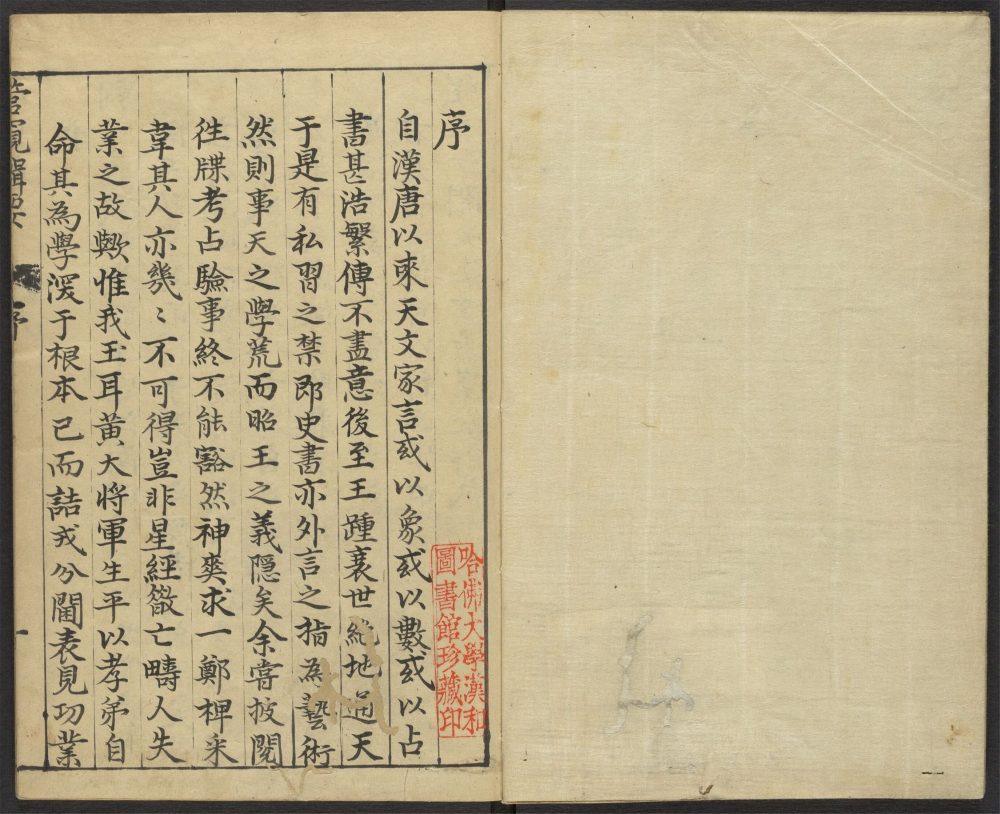 序
自漢唐以來天文家言或以象或以數或以占
書甚浩繁傳不盡意後至王踵衰世絶地通天
于是有私習之禁即史書亦外言之指為藝術
然則事天之學荒而昭王之義隱矣余嘗披閱
徃牒考占驗事終不能豁然神爽求一鄭裨梓
韋其人亦幾〻不可得豈非星經散亡疇人失
業之故歟惟我玉耳黄大將軍生平以孝弟自
命其為學深于根本已而詰戎分閫表見功業
管窺輯要
序
一
哈佛大學漢和
圖書館珍藏印